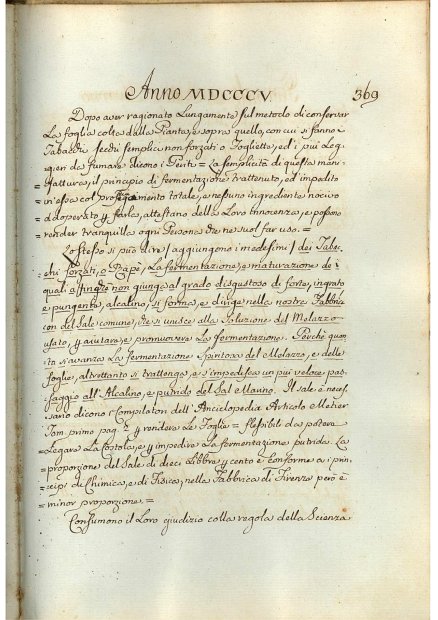 Anno MDCCCV. 369
Dopo aver ragionato Lungamente sul metodo di conservar
La foglia colta dalla Pianta, e sopra quello, con cui si fanno i
Tabacchi secchi semplici non forzati o Fogliette, ed i più Leg-
gieri da fumare dicono i Periti = La semplicità di questa mani-
fattura, il principio di fermentazione trattenuto, ed impedito
in essa col totale, e nessuno ingrediente nocivo
adoperato per farla, attestano della Loro innocenza, e possono
render tranquilla ogni Persona che ne suol far uso. =
Lo stesso si può dire / aggiungono i medesimi / dei Tabac-
chi forzati, o Rapè, La fermentazione, e maturazione de i
quali affinchè non giunga al grado disgustoso di forte, ingrato
e pungente, alcalino, si forma, e dirige nelle nostre Fabbri-
con del Sale comune, che si unisce alla Soluzione del Melazzo
usato, per aiutare, e promuovere La fermentazione. Perchè quan-
to si avanza La fermentazione Spiritosa del Melazzo, e delle
foglie, altrettanto si trattenga, e s'impedisca un più veloce pas-
saggio all'Alcalino, e putrido del Sal Marino. Il sale è neces-
sario dicono i Compilatori dell'Anciclopedia Articolo Metier
Tom. primo pag. per rendere Le Foglie = flessibili da potersi
Legare La Costola, e per impedire la fermentazione putrida. La
proporzione del Sale di dieci Libbre per cento è conforme a i prin-
cipj di Chimica, e di Fisica, nella Fabbrica di Firenze però è
minor proporzione. =
Consumono il Loro giudizio colla regola della Scienza